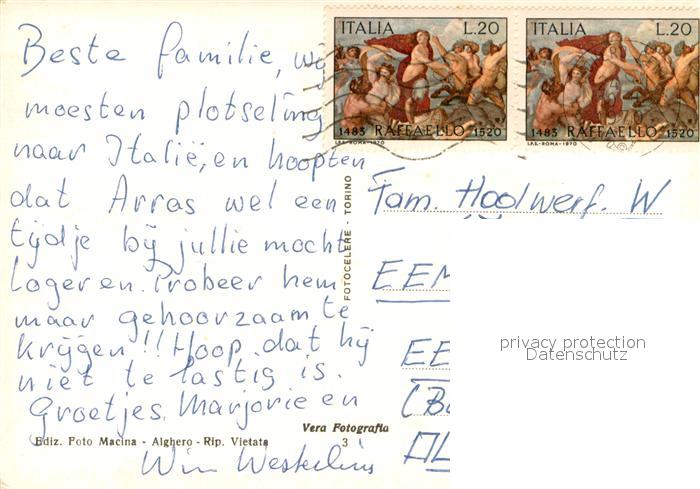 Beste familie, wij
moesten plotseling
naar Italië, en hoopten
dat Arras wel een
tijdje bij jullie mocht
logeren. Probeer hem
maar gehoorzaam te
krijgen!! Hoop dat hij
niet te lastig is.
Groetjes. Marjorie en
Wim
Vera Fotografia
Ediz. Foto Macina - Alghero - Rip. Vietata 3
FOTOCELERE - TORINO
ITALIA L.20
1483 RAFFAELLO 1520
I.P.S.-ROMA-1970
ITALIA L.20
1483 RAFFAELLO 1520
I.P.S.-ROMA-1970
Fam. Hoolwerf. W
EEM
EE
privacy protection
Datenschutz